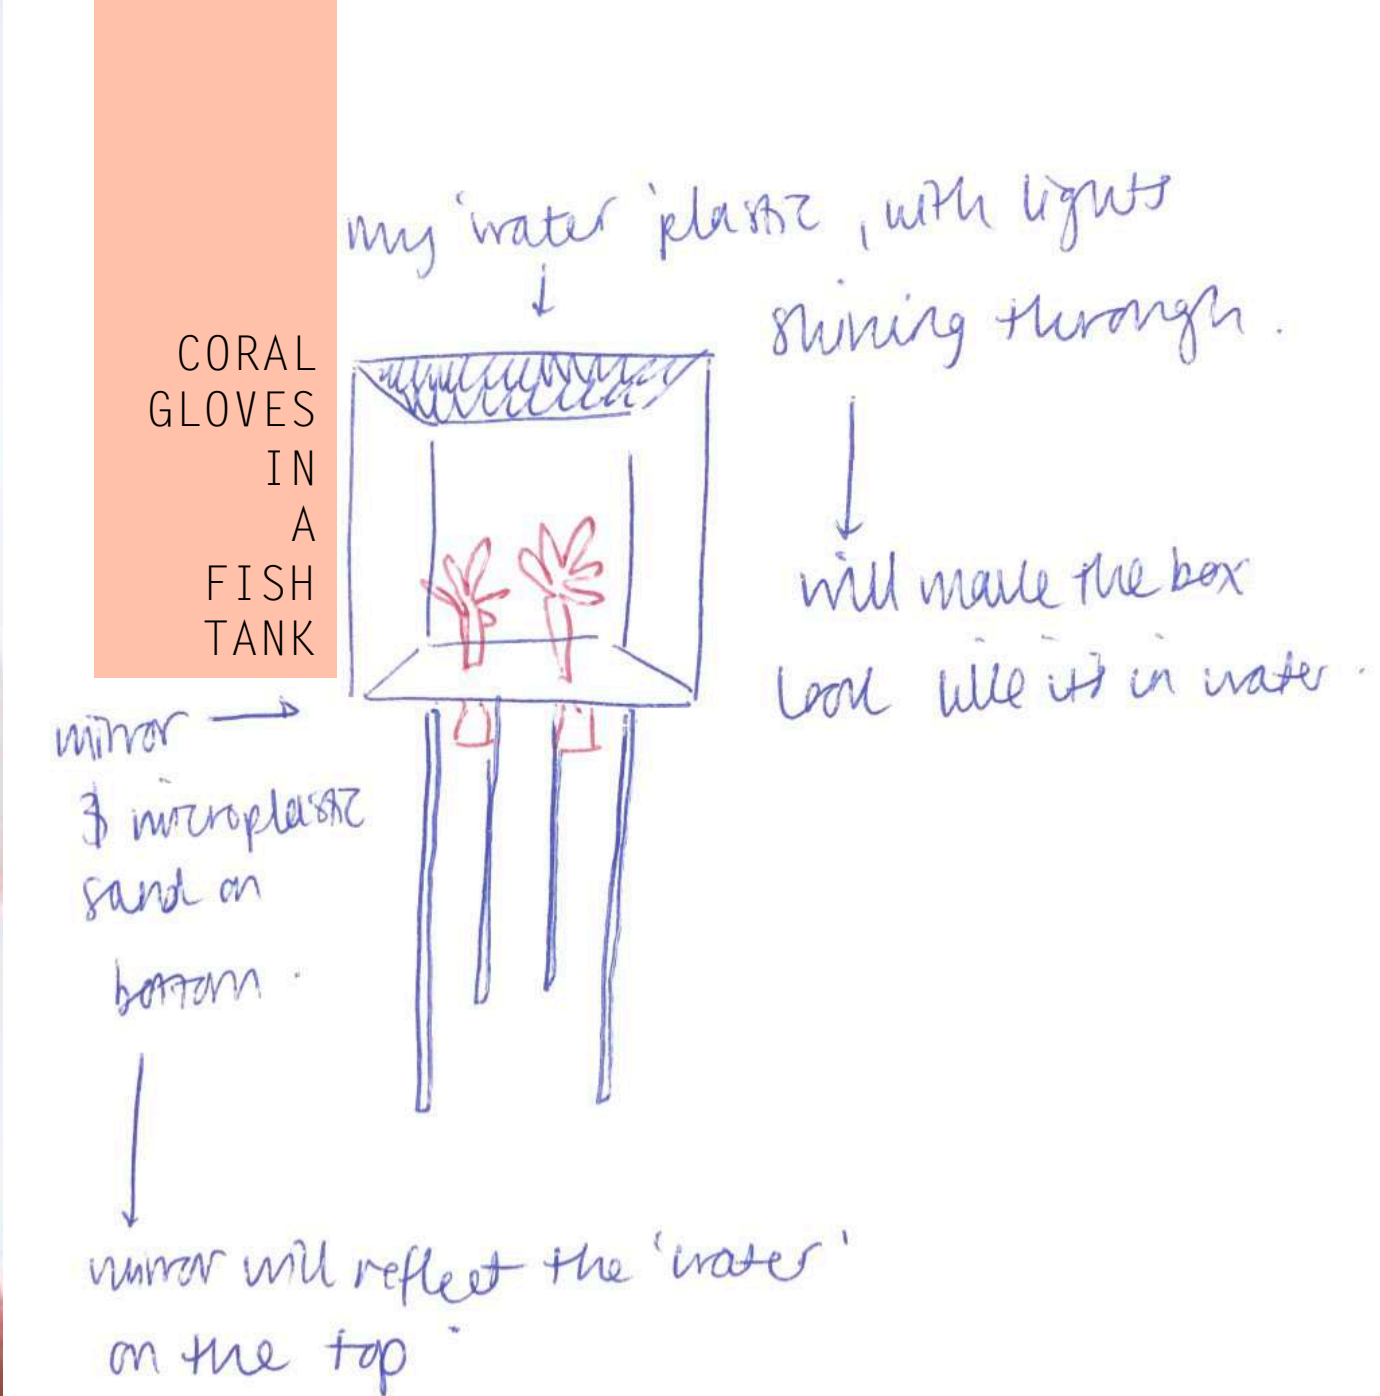 CORAL
GLOVES
IN
A
FISH
TANK
my 'water' plastic, with lights
shining through.
will make the box
look like it's in water.
mirror
& microplastic
sand on
bottom.
mirror will reflect the 'water'
on the top